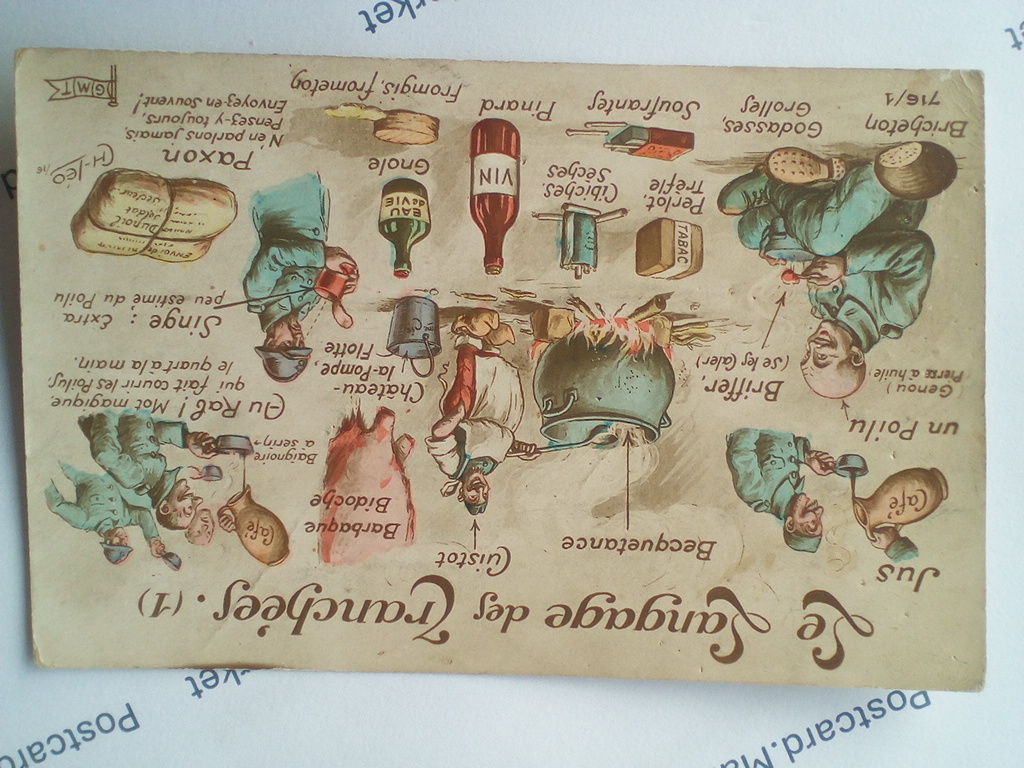 Le Langage des Tranchées. (1)
Jus
Café
Becquetance
Cuistot
Barbaque
Bidoche
Café
Baignoire
à serin
Au Rab! Mot magique,
qui fait courir les Poilus
le quart à la main.
un Poilu
(Genou
Pierre à huile)
Briffer
(Se les Caler)
Château-
la-Pompe,
Flotte
Singe : Extra
peu estimé du Poilu
TABAC
Perlot,
Trèfle
Cibiches,
Sèches
VIN
EAU
de VIE
Gnole
ENVOI de
Dunoit
Soldat
Secteur
Paxon
N'en parlons jamais,
Pensez-y toujours,
Envoyez-en souvent!
Bricheton
Godasses,
Grolles
Soufrantes
Pinard
Fromgis, frometon
716/1
GMT
Postcard.Market